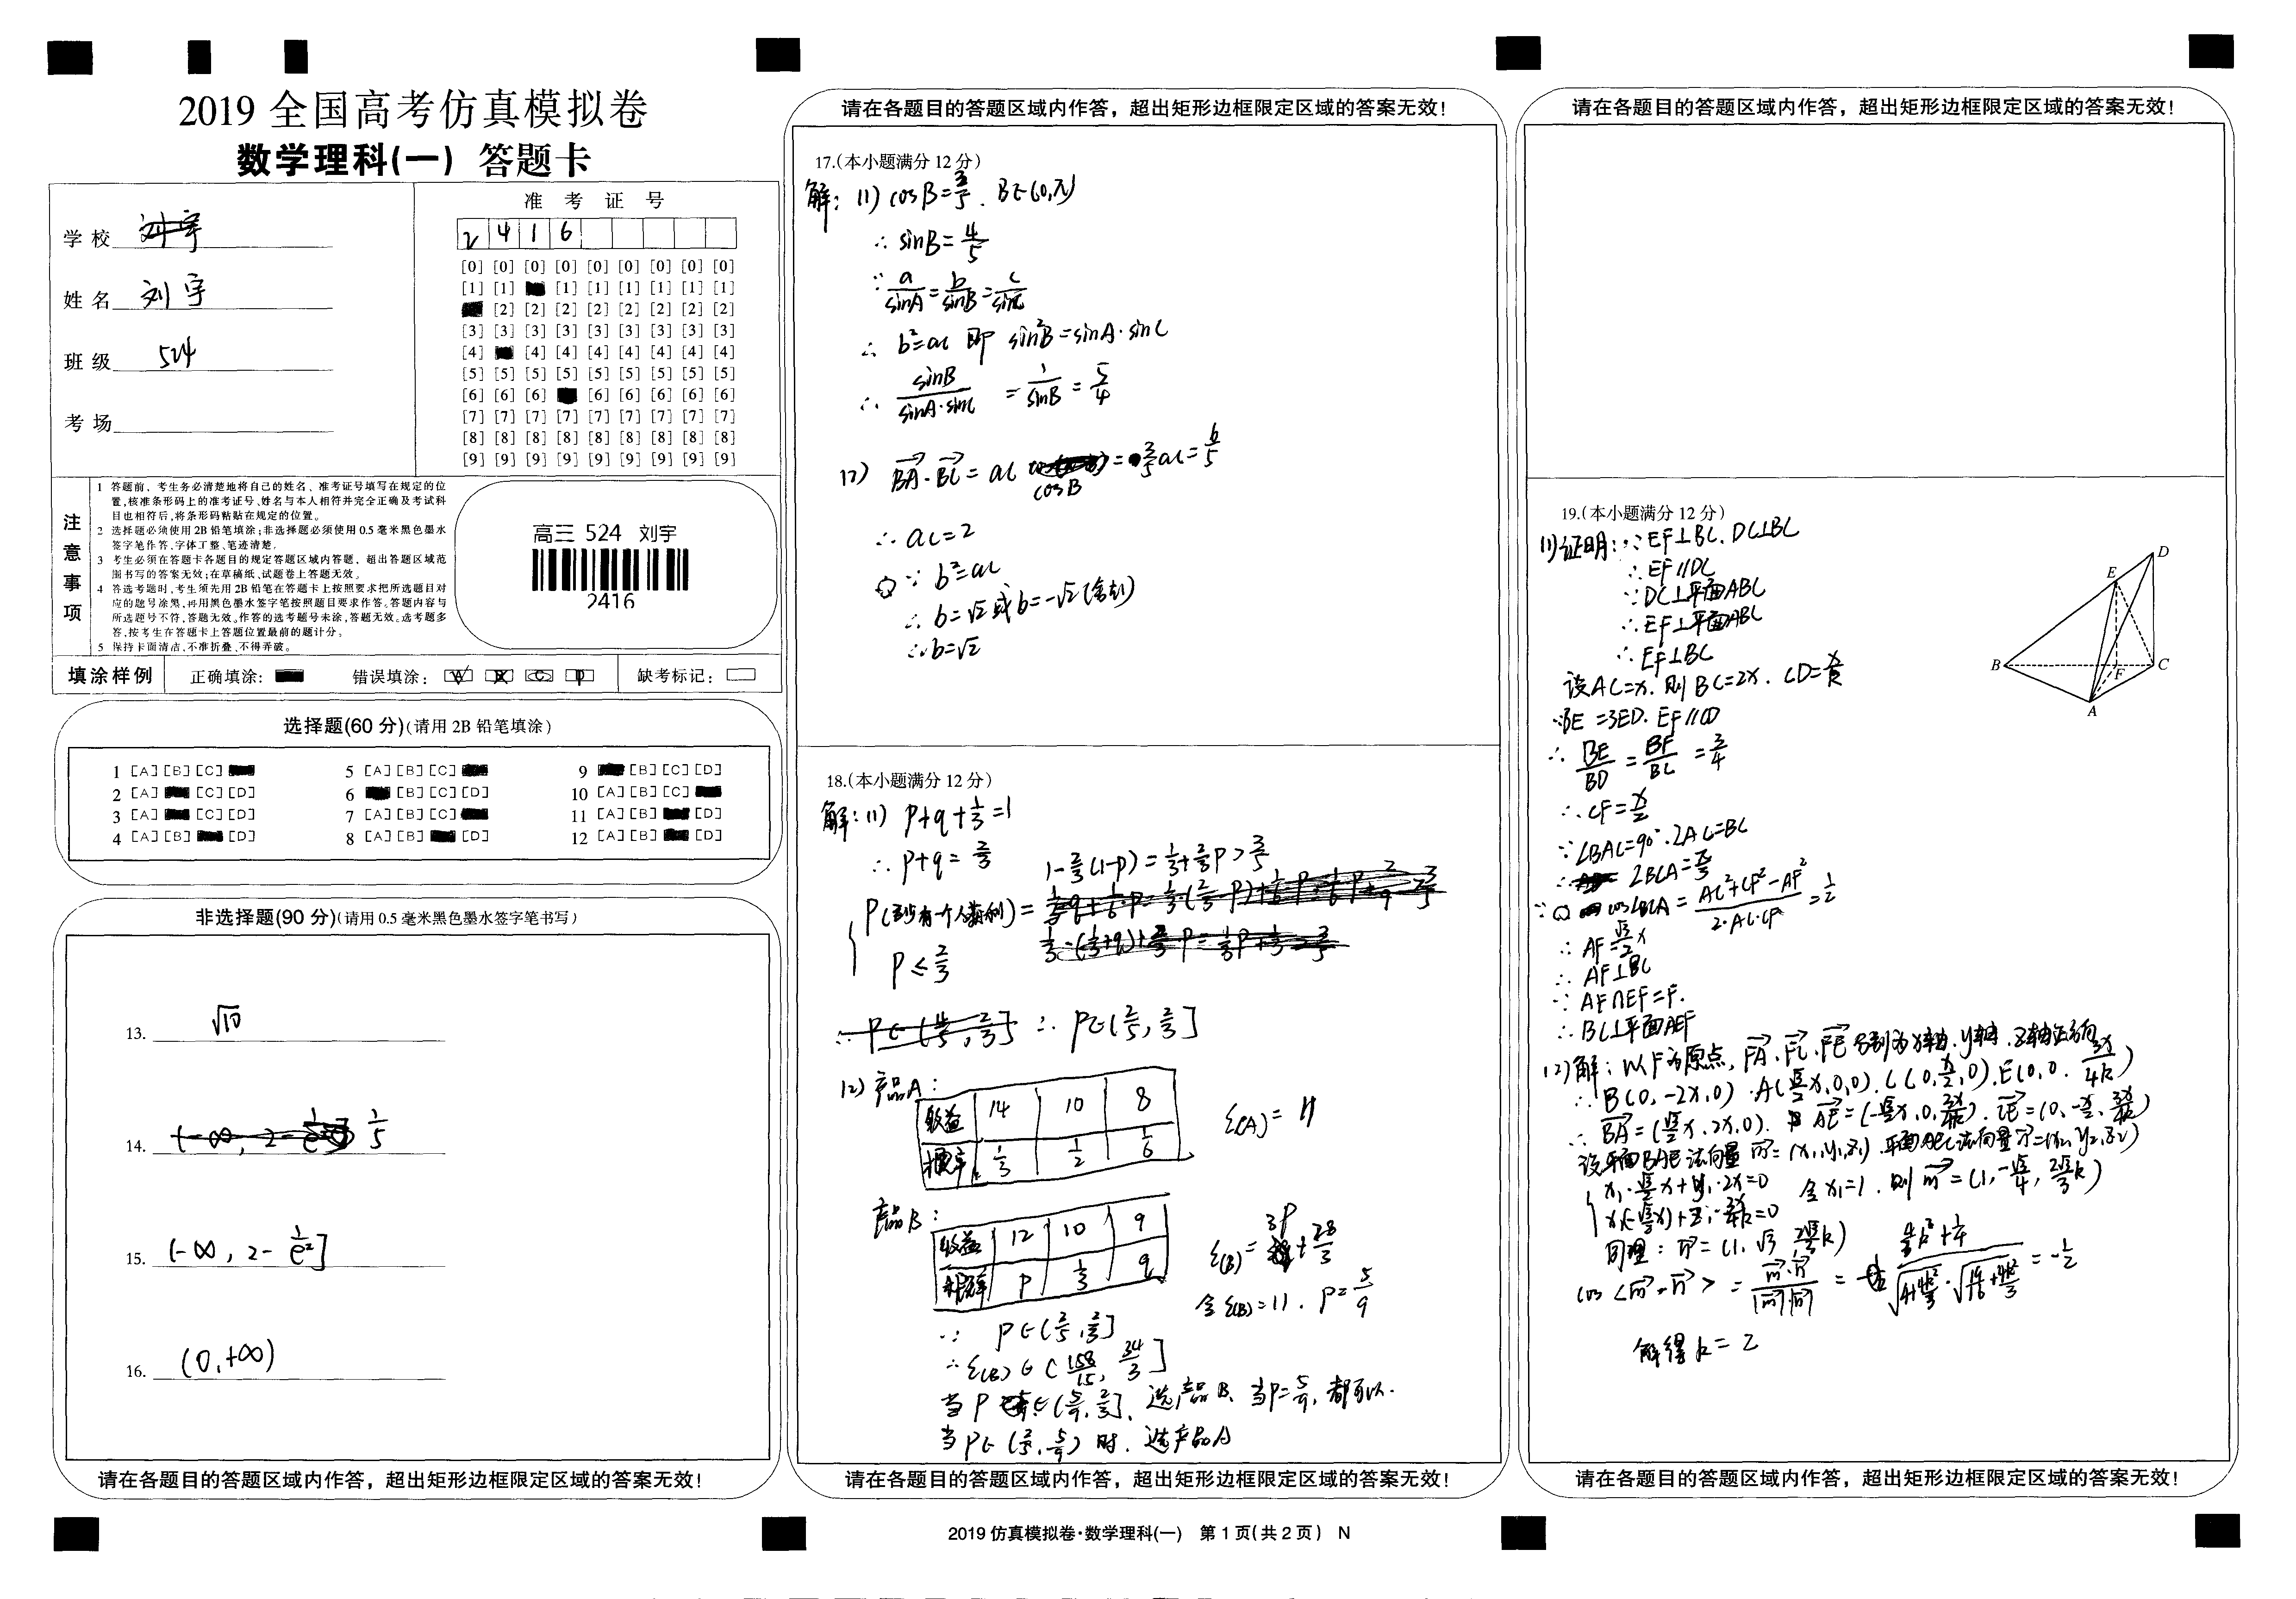 2019 全国高考仿真模拟卷
数学理科(一) 答题卡
学校 刘宇
姓名 刘宇
班级 524
考场
准 考 证 号
2 4 1 6
[0] [0] [0] [0] [0] [0] [0] [0] [0]
[1] [1] [1] [1] [1] [1] [1] [1]
[2] [2] [2] [2] [2] [2] [2] [2]
[3] [3] [3] [3] [3] [3] [3] [3] [3]
[4] [4] [4] [4] [4] [4] [4] [4]
[5] [5] [5] [5] [5] [5] [5] [5] [5]
[6] [6] [6] [6] [6] [6] [6] [6]
[7] [7] [7] [7] [7] [7] [7] [7] [7]
[8] [8] [8] [8] [8] [8] [8] [8] [8]
[9] [9] [9] [9] [9] [9] [9] [9] [9]
注意事项
1 答题前，考生务必清楚地将自己的姓名、准考证号填写在规定的位
置,核准条形码上的准考证号、姓名与本人相符并完全正确及考试科
目也相符后,将条形码粘贴在规定的位置。
2 选择题必须使用2B铅笔填涂;非选择题必须使用0.5毫米黑色墨水
签字笔作答,字体工整、笔迹清楚。
3 考生必须在答题卡各题目的规定答题区域内答题，超出答题区域范
围书写的答案无效;在草稿纸、试题卷上答题无效。
4 答选考题时,考生须先用2B铅笔在答题卡上按照要求把所选题目对
应的题号涂黑,再用黑色墨水签字笔按照题目要求作答。答题内容与
所选题号不符,答题无效。作答的选考题号未涂,答题无效。选考题多
答,按考生在答题卡上答题位置最前的题计分。
5 保持卡面清洁、不准折叠、不得弄破。
高三 524 刘宇
2416
填涂样例 正确填涂: 错误填涂: 缺考标记:
选择题(60分)(请用2B铅笔填涂)
1 [A] [B] [C] 5 [A] [B] [C] 9 [B] [C] [D]
2 [A] [C] [D] 6 [B] [C] [D] 10 [A] [B] [C]
3 [A] [C] [D] 7 [A] [B] [C] 11 [A] [B] [D]
4 [A] [B] [D] 8 [A] [B] [D] 12 [A] [B] [D]
非选择题(90分)(请用0.5毫米黑色墨水签字笔书写)
13. √10
14. 1/5
15. (-∞, 2-1/e²]
16. (0,+∞)
请在各题目的答题区域内作答，超出矩形边框限定区域的答案无效!
请在各题目的答题区域内作答，超出矩形边框限定区域的答案无效!
17.(本小题满分12分)
解: (1) cosB=3/5. B∈(0,π)
∴ sinB=4/5
∵ a/sinA=b/sinB=c/sinC
∴ b²=ac 即 sin²B=sinA·sinC
∴ sinB/(sinA·sinC) = 1/sinB = 5/4
(2) BA·BC = ac cosB = 3/5 ac = 6/5
∴ ac=2
∵ b²=ac
∴ b=√2 或 b=-√2 (舍去)
∴ b=√2
18.(本小题满分12分)
解: (1) p+q+1/3=1
∴ p+q=2/3
P(至少有一个人获利) = 1-2/3(1-p)=1/3+2/3p>3/5
p≤2/3
∴ p∈(2/5, 2/3]
(2) 产品A:
收益 14 10 8
概率 1/3 1/2 1/6
E(A)= 11
产品B:
收益 12 10 9
概率 p 1/3 q
E(B)= 3p+28/3
令E(B)=11. p=5/9
∵ p∈(2/5, 2/3]
∴ E(B)∈(158/15, 34/3]
当p∈(5/9, 2/3], 选产品B、当p=5/9, 都可以.
当p∈(2/5, 5/9) 时, 选产品A
请在各题目的答题区域内作答，超出矩形边框限定区域的答案无效!
2019 仿真模拟卷·数学理科(一) 第1页(共2页) N
请在各题目的答题区域内作答，超出矩形边框限定区域的答案无效!
19.(本小题满分12分)
(1)证明: ∵ EF⊥BC. DC⊥BC
∴ EF∥DC
∵ DC⊥平面ABC
∴ EF⊥平面ABC
∴ EF⊥BC
设AC=x. 则BC=2x. CD=x/k
∵BE=3ED. EF∥CD
∴ BE/BD = BF/BC = 3/4
∴ CF=x/2
∵∠BAC=90°. 2AC=BC
∴ ∠BCA=π/3
∵ cos∠BCA = (AC²+CF²-AF²)/(2·AC·CF) = 1/2
∴ AF=√3/2 x
∴ AF⊥BC
∵ AF∩EF=F.
∴ BC⊥平面AEF
D
E
B
F
C
A
(2)解: 以F为原点, FA、FC、FE分别为x轴、y轴、z轴正方向
∴ B(0,-2x,0). A(√3/2x,0,0). C(0,x/2,0). E(0,0,3x/4k)
∴ BA=(√3/2x,2x,0). AE=(-√3/2x,0,3x/4k). CE=(0,-x/2,3x/4k)
设平面BAE法向量 m=(x₁,y₁,z₁). 平面AEC法向量n=(x₂,y₂,z₂)
x₁·√3/2x+y₁·2x=0
x₁(-√3/2x)+z₁·3x/4k=0
令x₁=1. 则 m=(1,-√3/4,2√3/3k)
同理: n=(1,√3,2√3/3k)
cos<m,n> = m·n/|m||n| = = -1/2
解得k=2
请在各题目的答题区域内作答，超出矩形边框限定区域的答案无效!